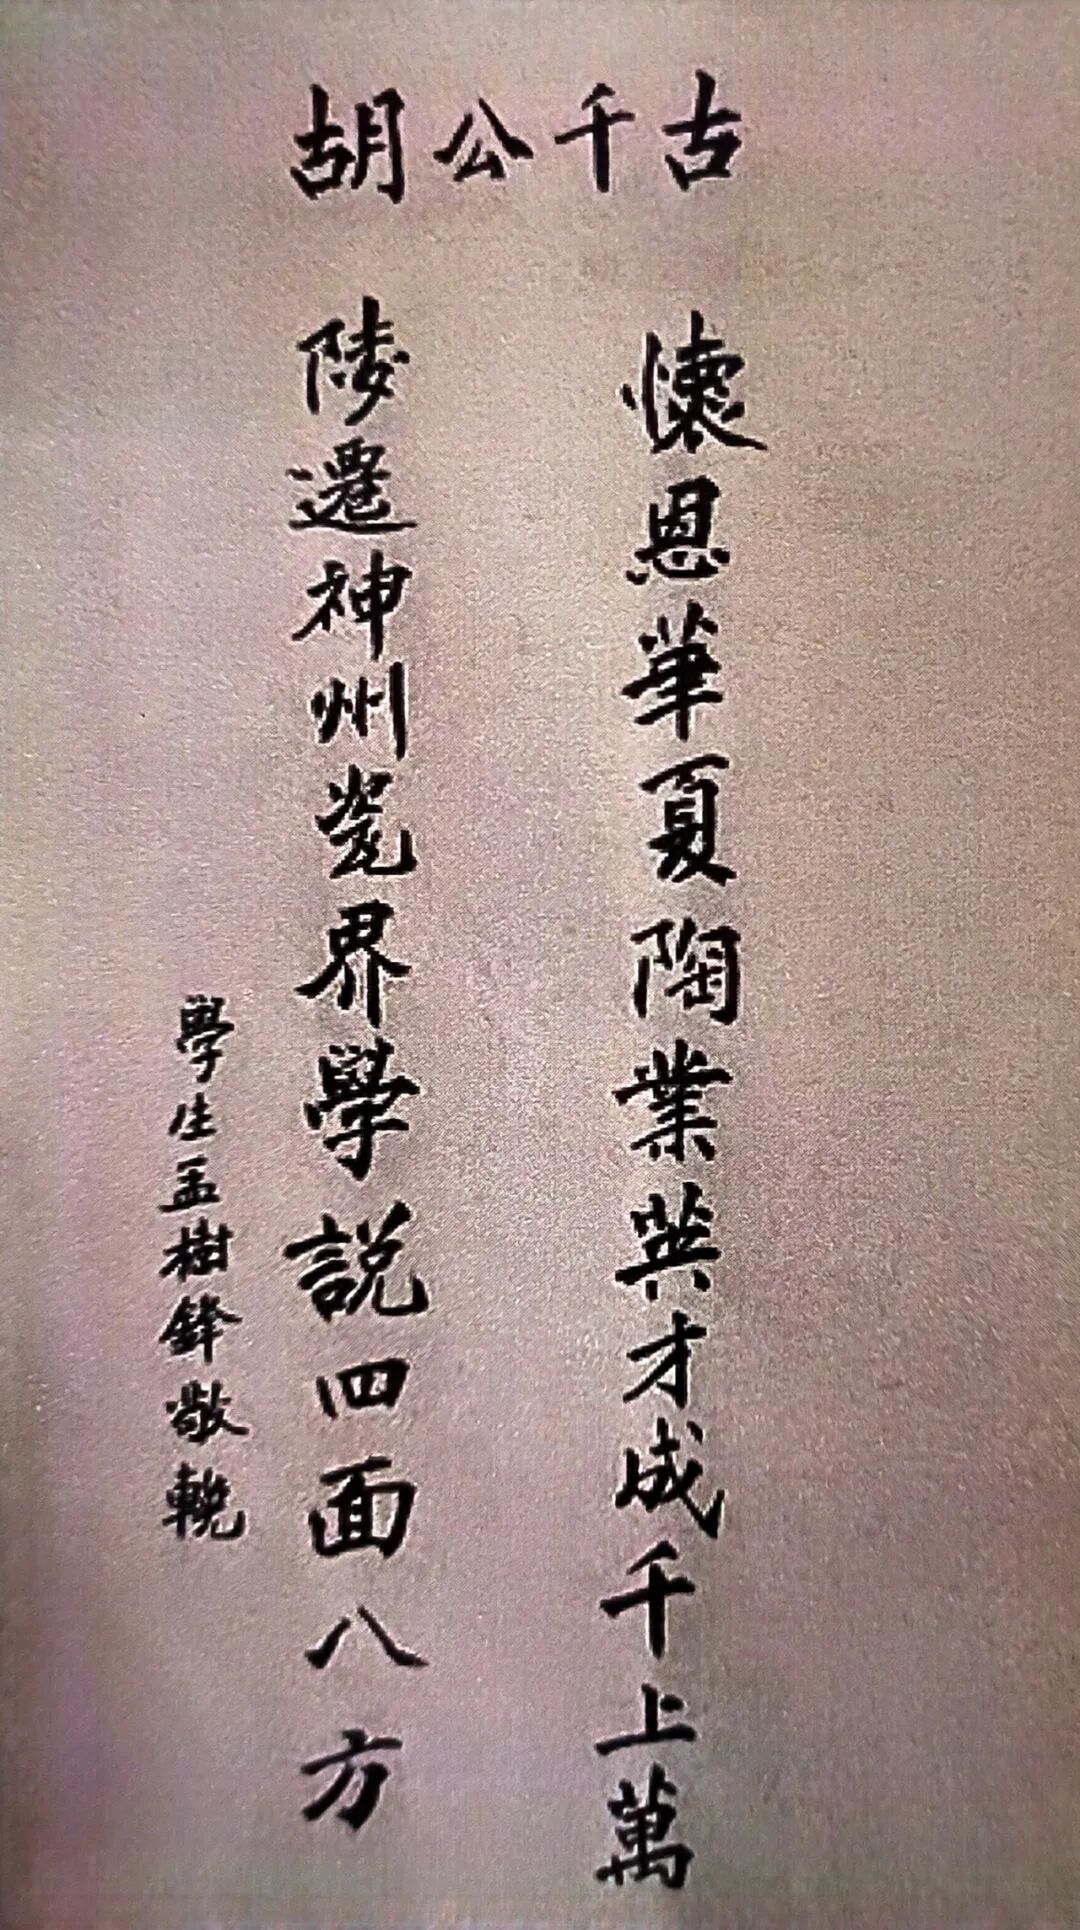 胡公千古
懷恩華夏陶業英才成千上萬
陵遷神州瓷界學説四面八方
學生孟樹鋒敬輓